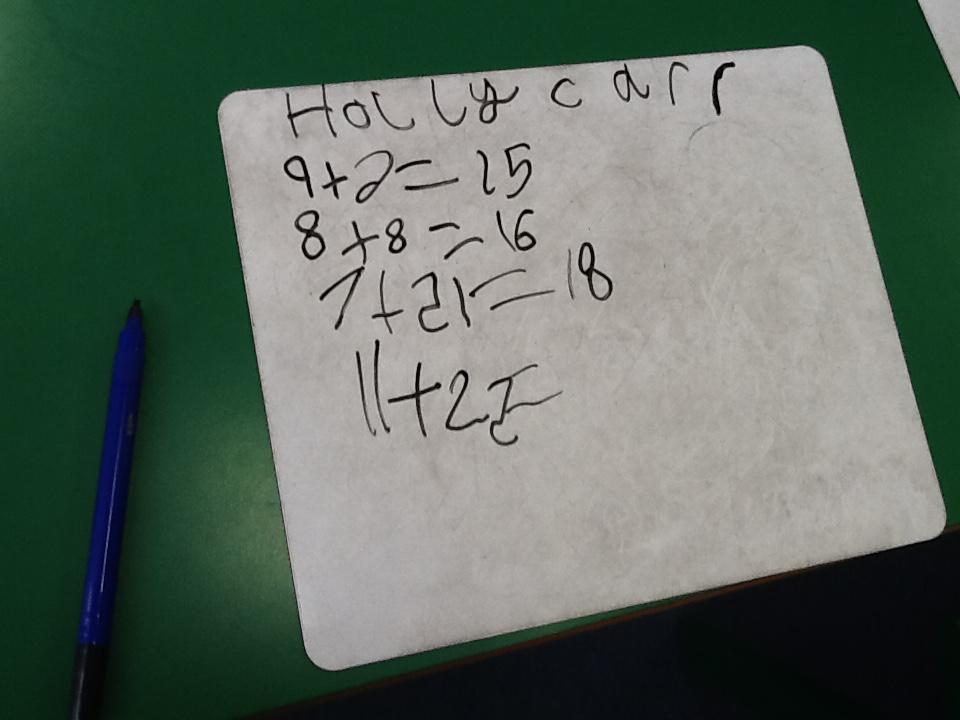 Holly carr
9+2=15
8+8=16
7+21=18
11+25=